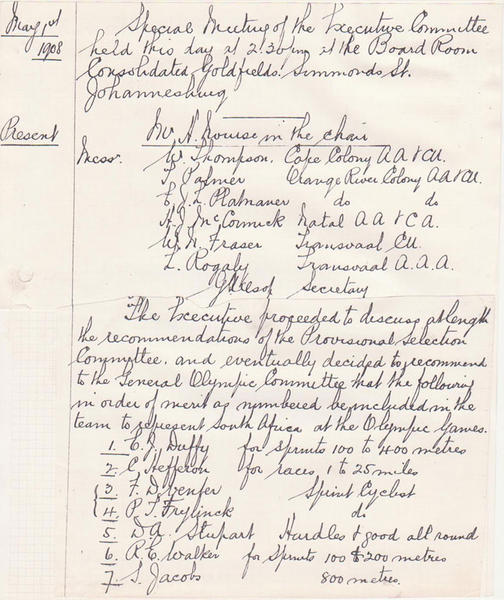 May 1st
1908
Special Meeting of the Executive Committee
held this day at 2.30 pm at the Board Room
Consolidated Goldfields. Simmonds St.
Johannesburg
Present
Mr H. Nourse in the chair
Messrs. W. Thompson. Cape Colony A A & C U.
T. Palmer Orange River Colony A A & C U.
E. J. L. Platnauer do do
A. J. McCormick Natal A A & C A.
W. N. Fraser Transvaal C U.
L. Rogaly Transvaal A. A. A.
Secretary
The Executive proceeded to discuss at length
the recommendations of the Provisional Selection
Committee. and eventually decided to recommend
to the General Olympic Committee that the following
in order of merit as numbered be included in the
team to represent South Africa at the Olympic Games.
1. E. J. Duffy for Sprints 100 to 400 metres
2. C. Hefferon for races, 1 to 25 miles
3. F. D. Venter Sprint Cyclist
4. P. T. Frylinck do.
5. D. A. Stupart Hurdles & good all round
6. R. E. Walker for Sprints 100 & 200 metres
7. S. Jacobs 800 metres.